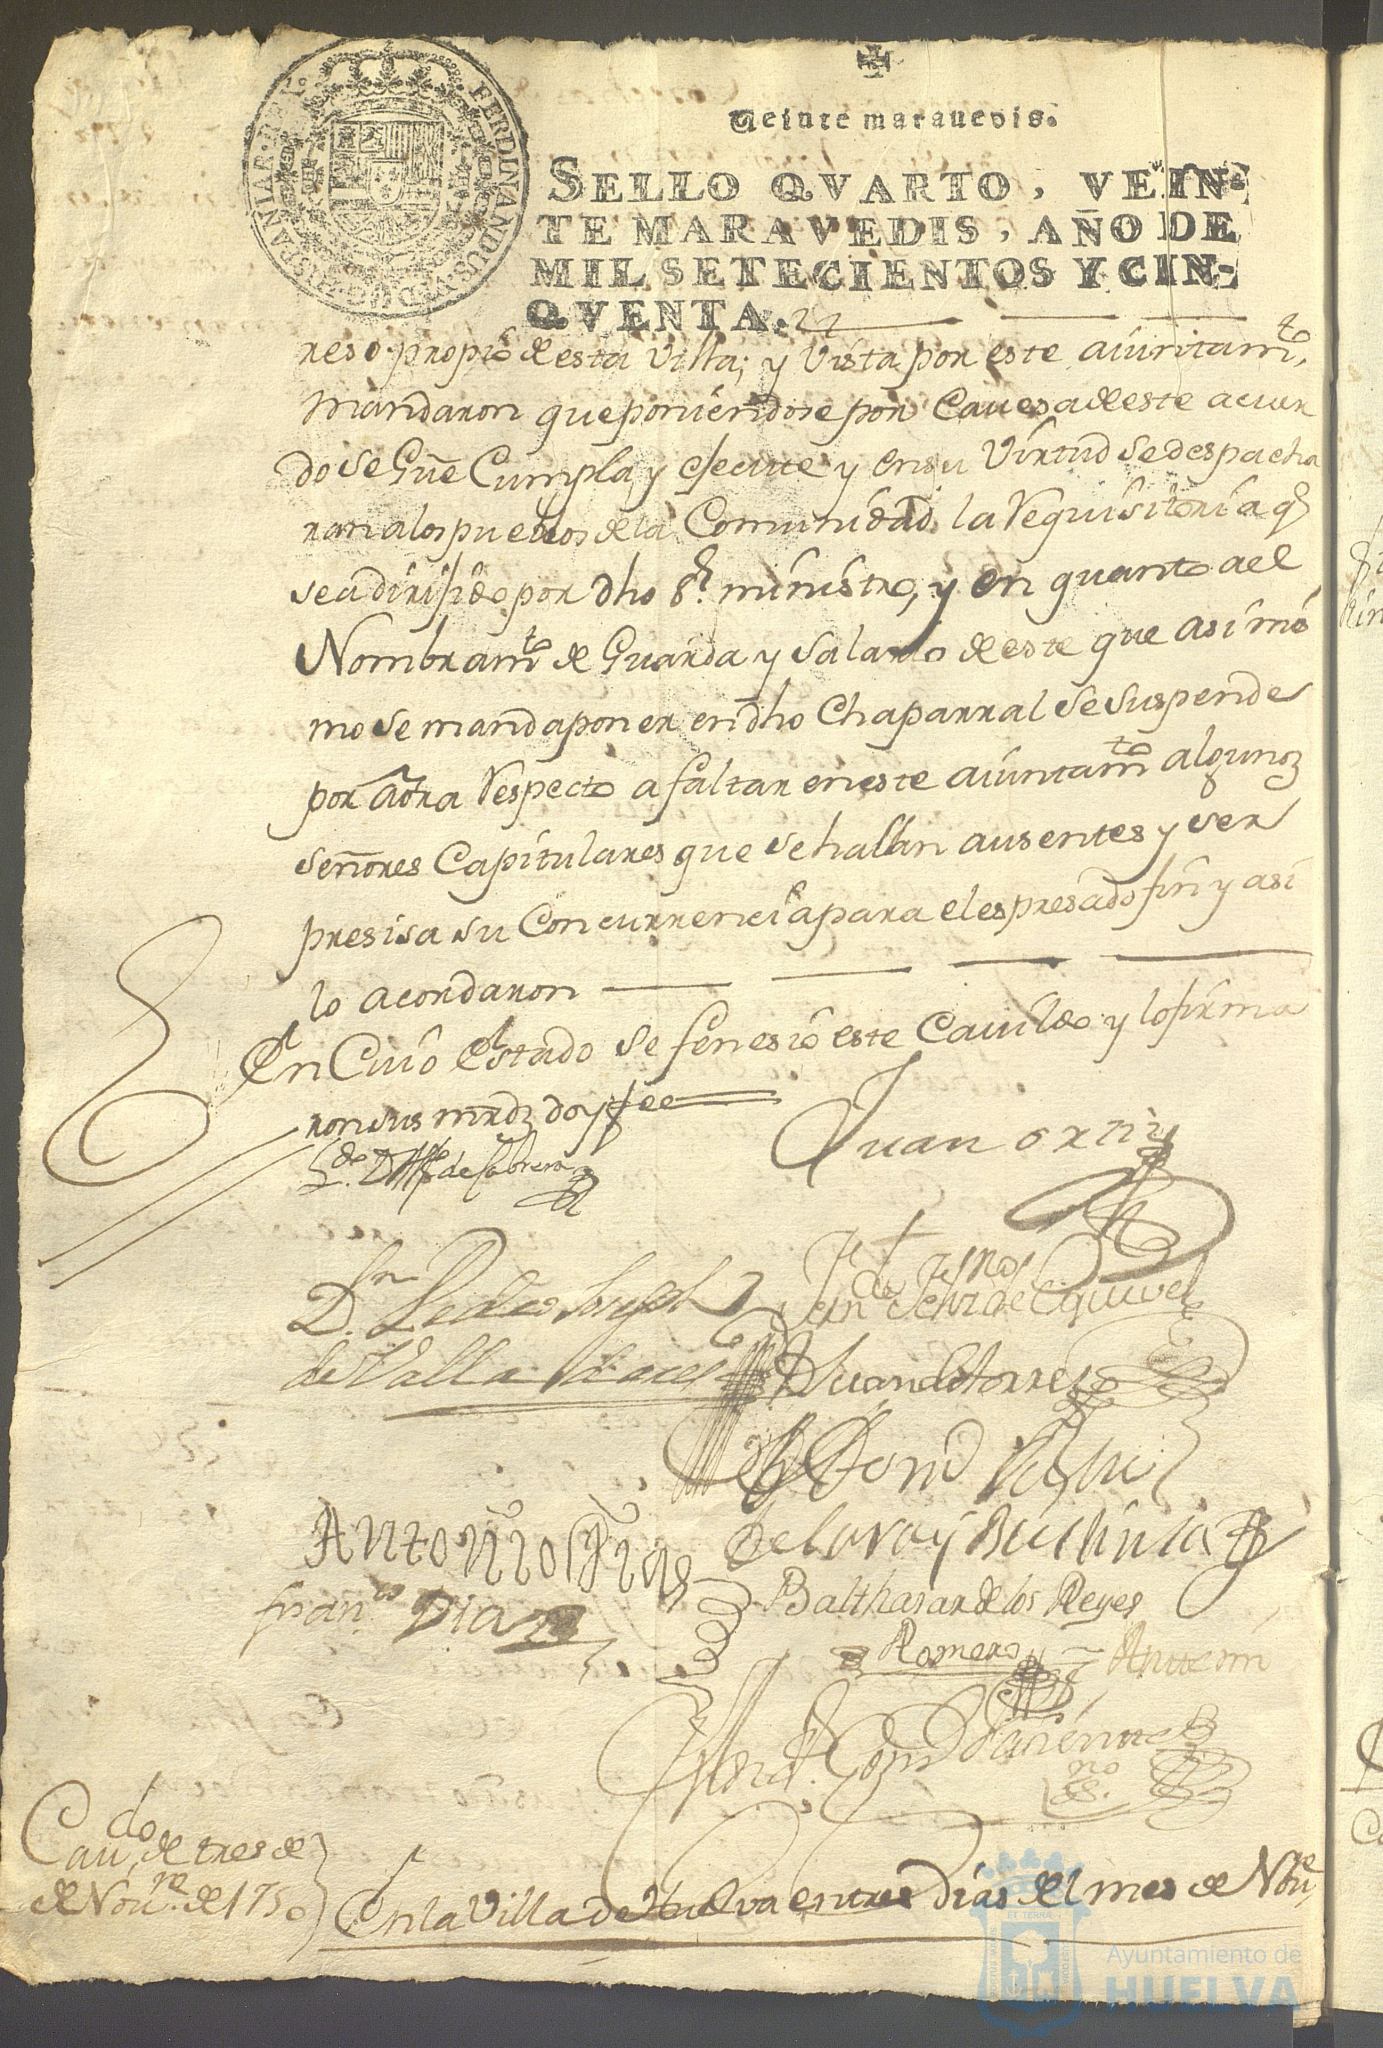 FERDINANDUS·VI·D·G·HISPANIAR·REX·
Veinte maravedis.
SELLO QVARTO, VEIN-
TE MARAVEDIS, AÑO DE
MIL SETECIENTOS Y CIN-
QVENTA.
reso propio de esta Villa; y Vista por este aiuntamto,
Mandaron que poniendose por Cavesa de este acuer
do se Gue Cumpla y efecute y en su Virtud se despacha
ran a los pueblos de la Comunidad la Requisitoria q
sea dirijido por dho Sr. ministro, y en quanto a el
Nombramto de Guarda y Salario de este que asimis
mo se manda poner en dho Chaparral se suspende
por aora Respecto a faltar en este aiuntamto algunos
señores Capitulares que se hallan ausentes y ser
presisa su Concurrencia para el espresado fin y asi
lo acordaron
En Cuio Estado se fenesio este Cavildo y lo firma
ron sus mrdz doy fee
Ldo. D. de Cabrera
Juan ortiz
Dn. Pedro Joseph
de Valladares
de Esquivel
Juan de torres
de Lara y
Antonio
Balthasar de los Reyes
franco Diaz
Romero
Ante mi
Cavdo de tres de
de Novre. de 1750
En la Villa de Huelva en tres dias del mes de Novre
Ayuntamiento de
HUELVA